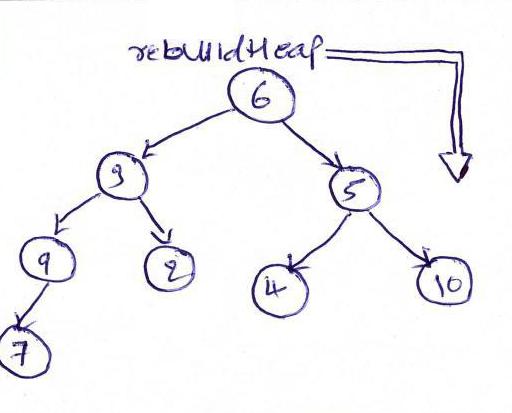 rebuildHeap
6
3
5
9
2
4
10
7